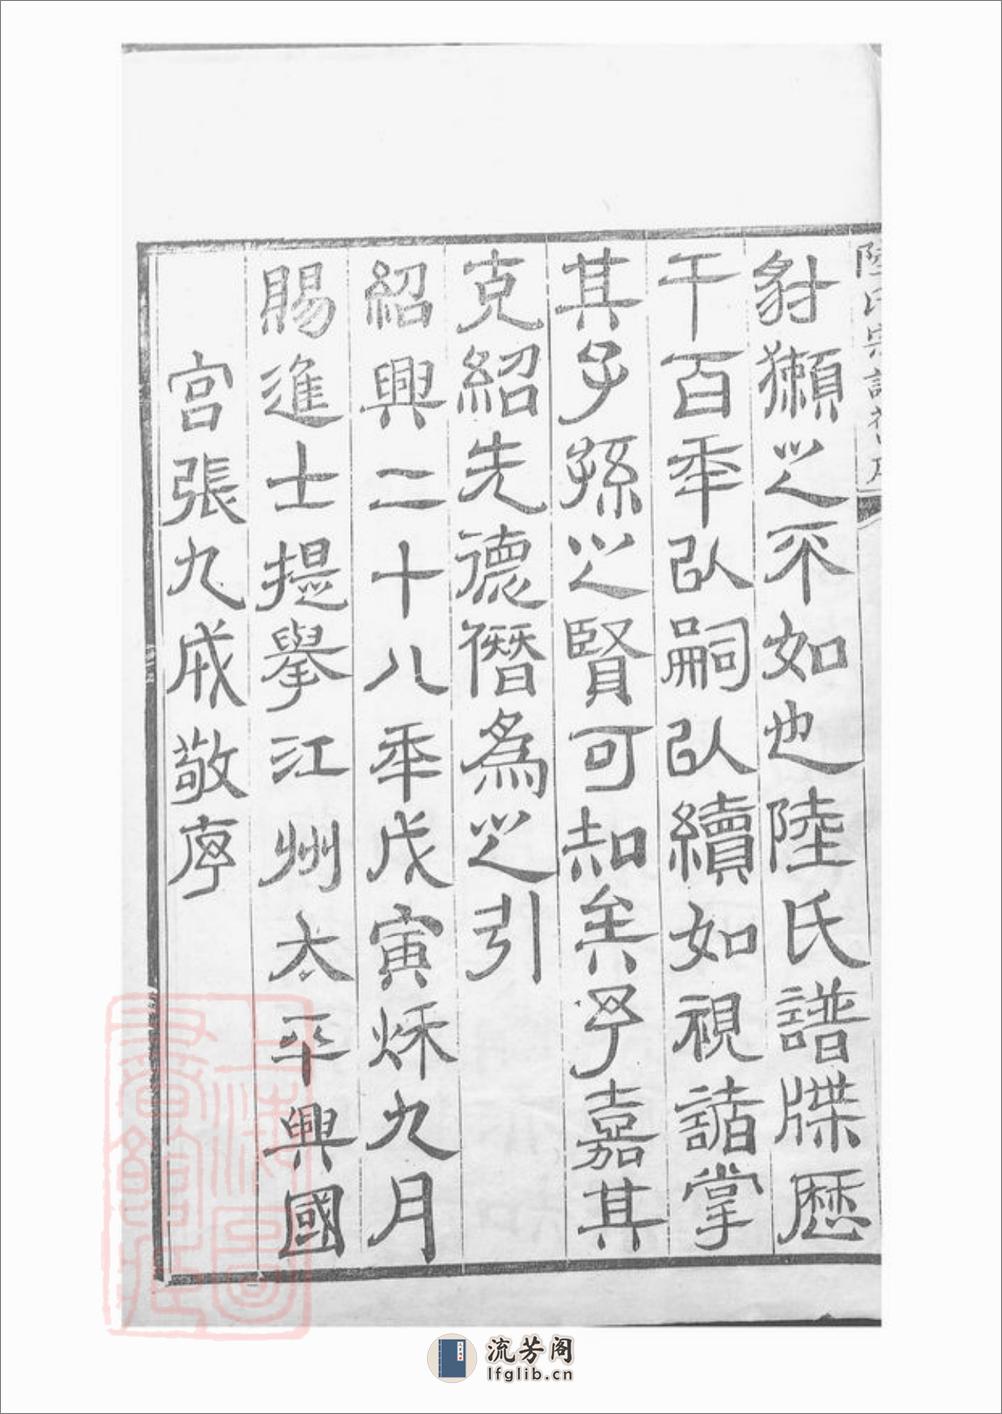 豺獺之不如也陸氏譜牒歷
千百年以嗣以續如視諸掌
其子孫之賢可知矣予嘉其
克紹先德僭為之引
紹興二十八年戊寅秌九月
賜進士提舉江州太平興國
宮張九成敬序
陸氏宗譜舊序
上海圖書館藏
流芳阁
lfglib.cn